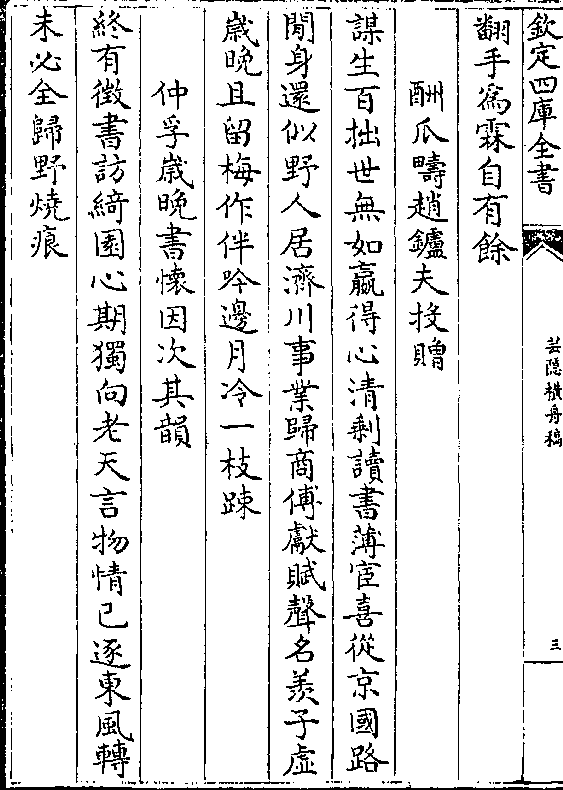 欽定四庫全書
芸隱橫舟稿
三
翻手爲霖自有餘
酬瓜疇趙鑪夫投贈
謀生百拙世無如贏得心清剩讀書薄宦喜從京國路
閒身還似野人居濟川事業歸商傅獻賦聲名羨子虛
歳晚且留梅作伴吟邊月冷一枝踈
仲孚歳晚書懷因次其韻
終有徴書訪綺園心期獨向老天言物情已逐東風轉
未必全歸野燒痕